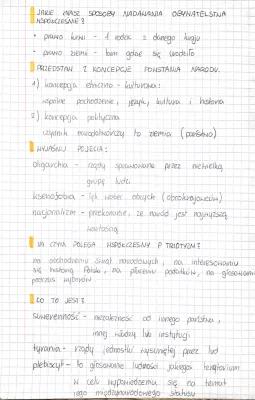 JAKIE MASZ SPOSOBY NADAWANIA OBYWATELSTWA
WSPÓŁCZEŚNIE?
• prawo krwi - 1 rodzic z danego kraju
• prawo ziemi - tam gdzie się urodziło
PRZEDSTAW 2 KONCEPCJE POWSTANIA NARODU.
1) koncepcja etniczno - kulturowa:
wspólne pochodzenie, język, kultura i historia
2) koncepcja polityczna
czynnik narodotwórczy to ziemia (państwo)
WYJAŚNIJ POJĘCIA:
oligarchia - rządy sprawowane przez niewielką
grupę ludzi
ksenofobia - lęk wobec obcych (obcokrajowców)
nacjonalizm - przekonanie, że naród jest najwyższą
wartością
NA CZYM POLEGA WSPÓŁCZESNY PATRIOTYZM?
na obchodzeniu świąt narodowych, na interesowaniu
się historią Polski, na płaceniu podatków, na głosowaniu
podczas wyborów
CO TO JEST?
suwerenność - niezależność od innego państwa,
innej władzy lub instytucji
tyrania - rządy jednostki wysuniętej przez lud
plebiscyt - to głosowanie ludności jakiegoś terytorium
w celu wypowiedzenia się na temat
jego międzynarodowego statusu